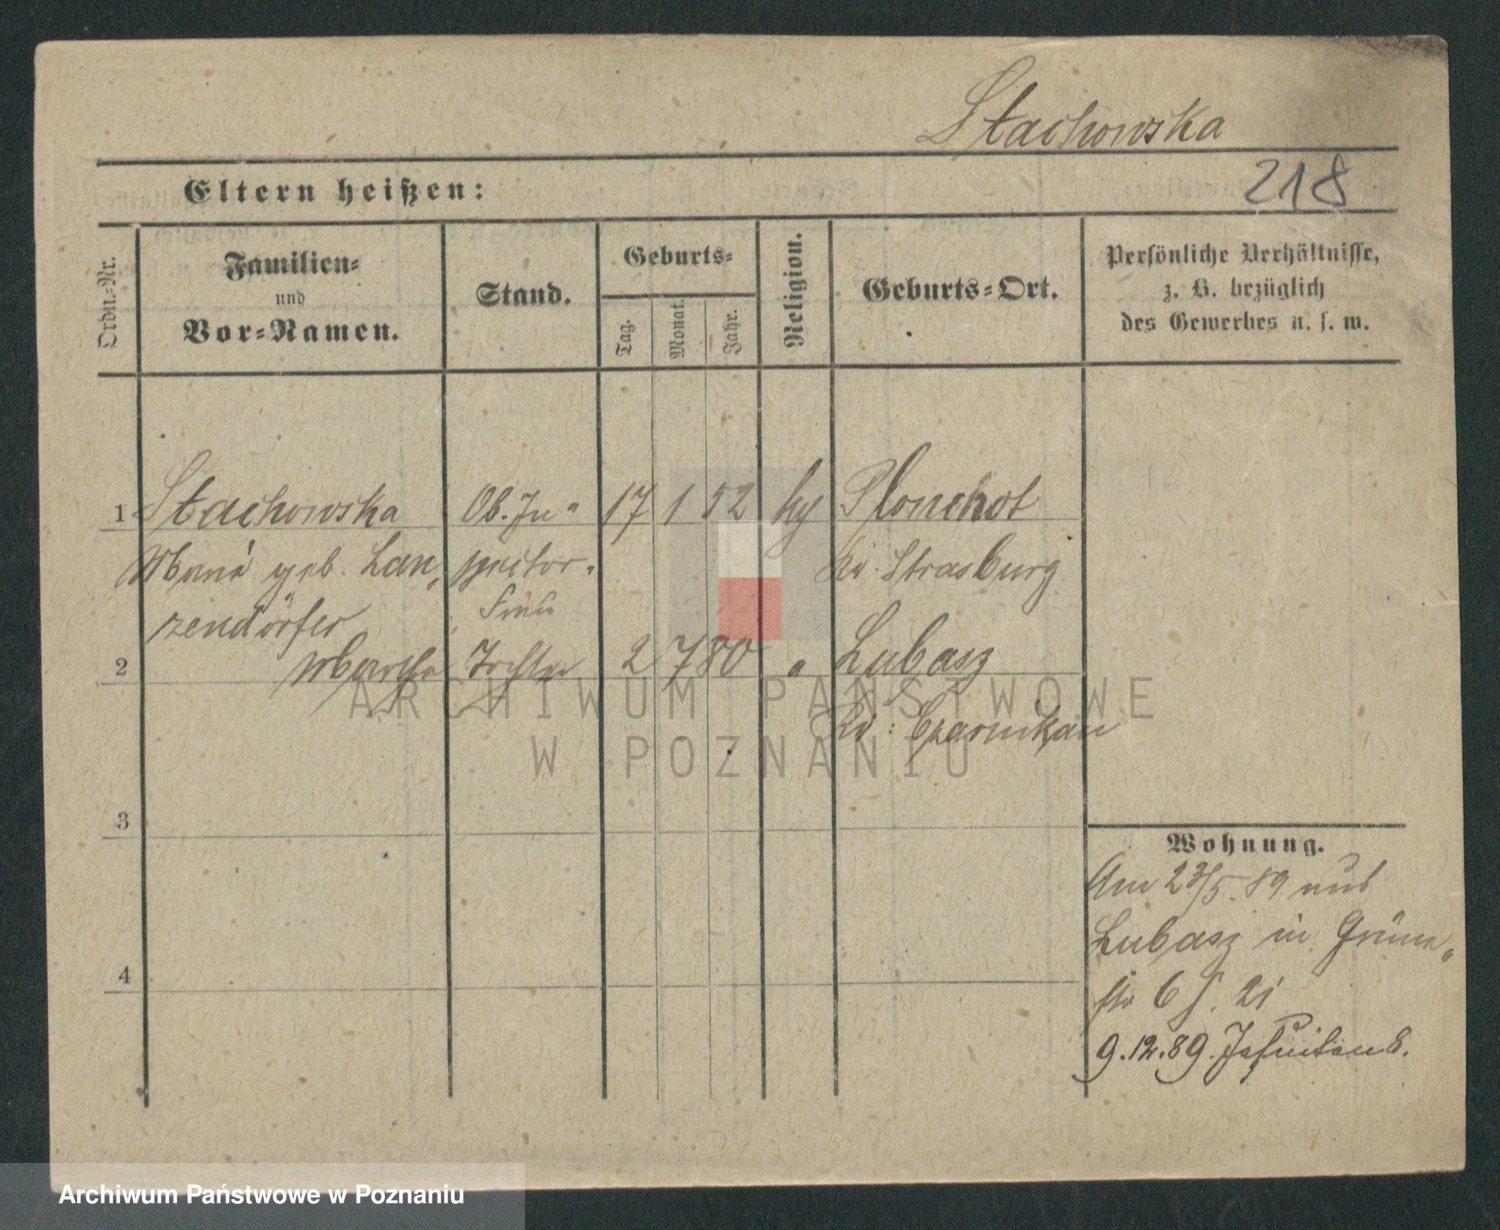 Stachowska
218
Eltern heißen:
Ordn.-Nr.
Familien-
und
Vor-Namen.
Stand.
Geburts-
Tag.
Monat.
Jahr.
Religion.
Geburts-Ort.
Persönliche Verhältnisse,
z. B. bezüglich
des Gewerbes u. s. w.
1 Stachowska Ob. In- 17 1 52 Plonchot
geb. Lan- spector- Kr. Strasburg
zendörfer Frau
2 Martha Tochter 2 7 80 " Lubasz
Kr: Czarnikau
3
4
Wohnung.
Am 23/5.89 aus
Lubasz in Grüne-
str 6
9.12.89. Jesuitenstr 8.
ARCHIWUM PAŃSTWOWE
W POZNANIU
Archiwum Państwowe w Poznaniu